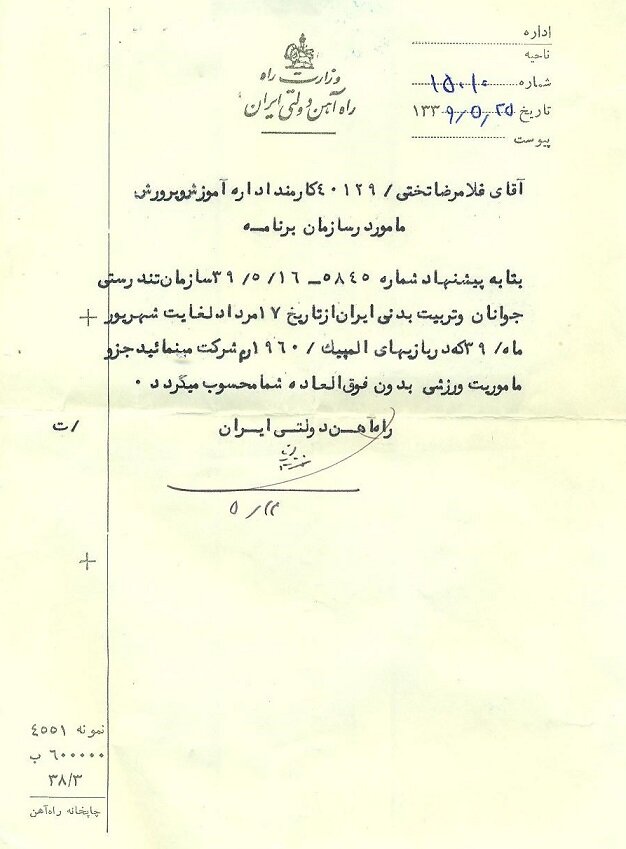 اداره
ناحیه
شماره ۱۵۰۱۰
تاریخ ۱۳۳۹/۵/۲۵
پیوست
وزارت راه
راه آهن دولتی ایران
آقای غلامرضا تختی / ٤٠١٢٩ کارمند اداره آموزش و پرورش
مامور در سازمان برنامه
بنا به پیشنهاد شماره ٥٨٤٥ – ٣٩/٥/١٦ سازمان تندرستی
جوانان وتربیت بدنی ایران از تاریخ ١٧ مرداد لغایت شهریور
ماه/ ٣٩ که در بازیهای المپیک / ١٩٦٠ رم شرکت مینمائید جزو
ماموریت ورزشی بدون فوق العاده شما محسوب میگردد ٠
راه آهن دولتی ایران
/ت
۵/۲۲
نمونه ٤٥٥١
٦٠٠٠٠٠ ب
٣٨/٣
چاپخانه راه‌آهن